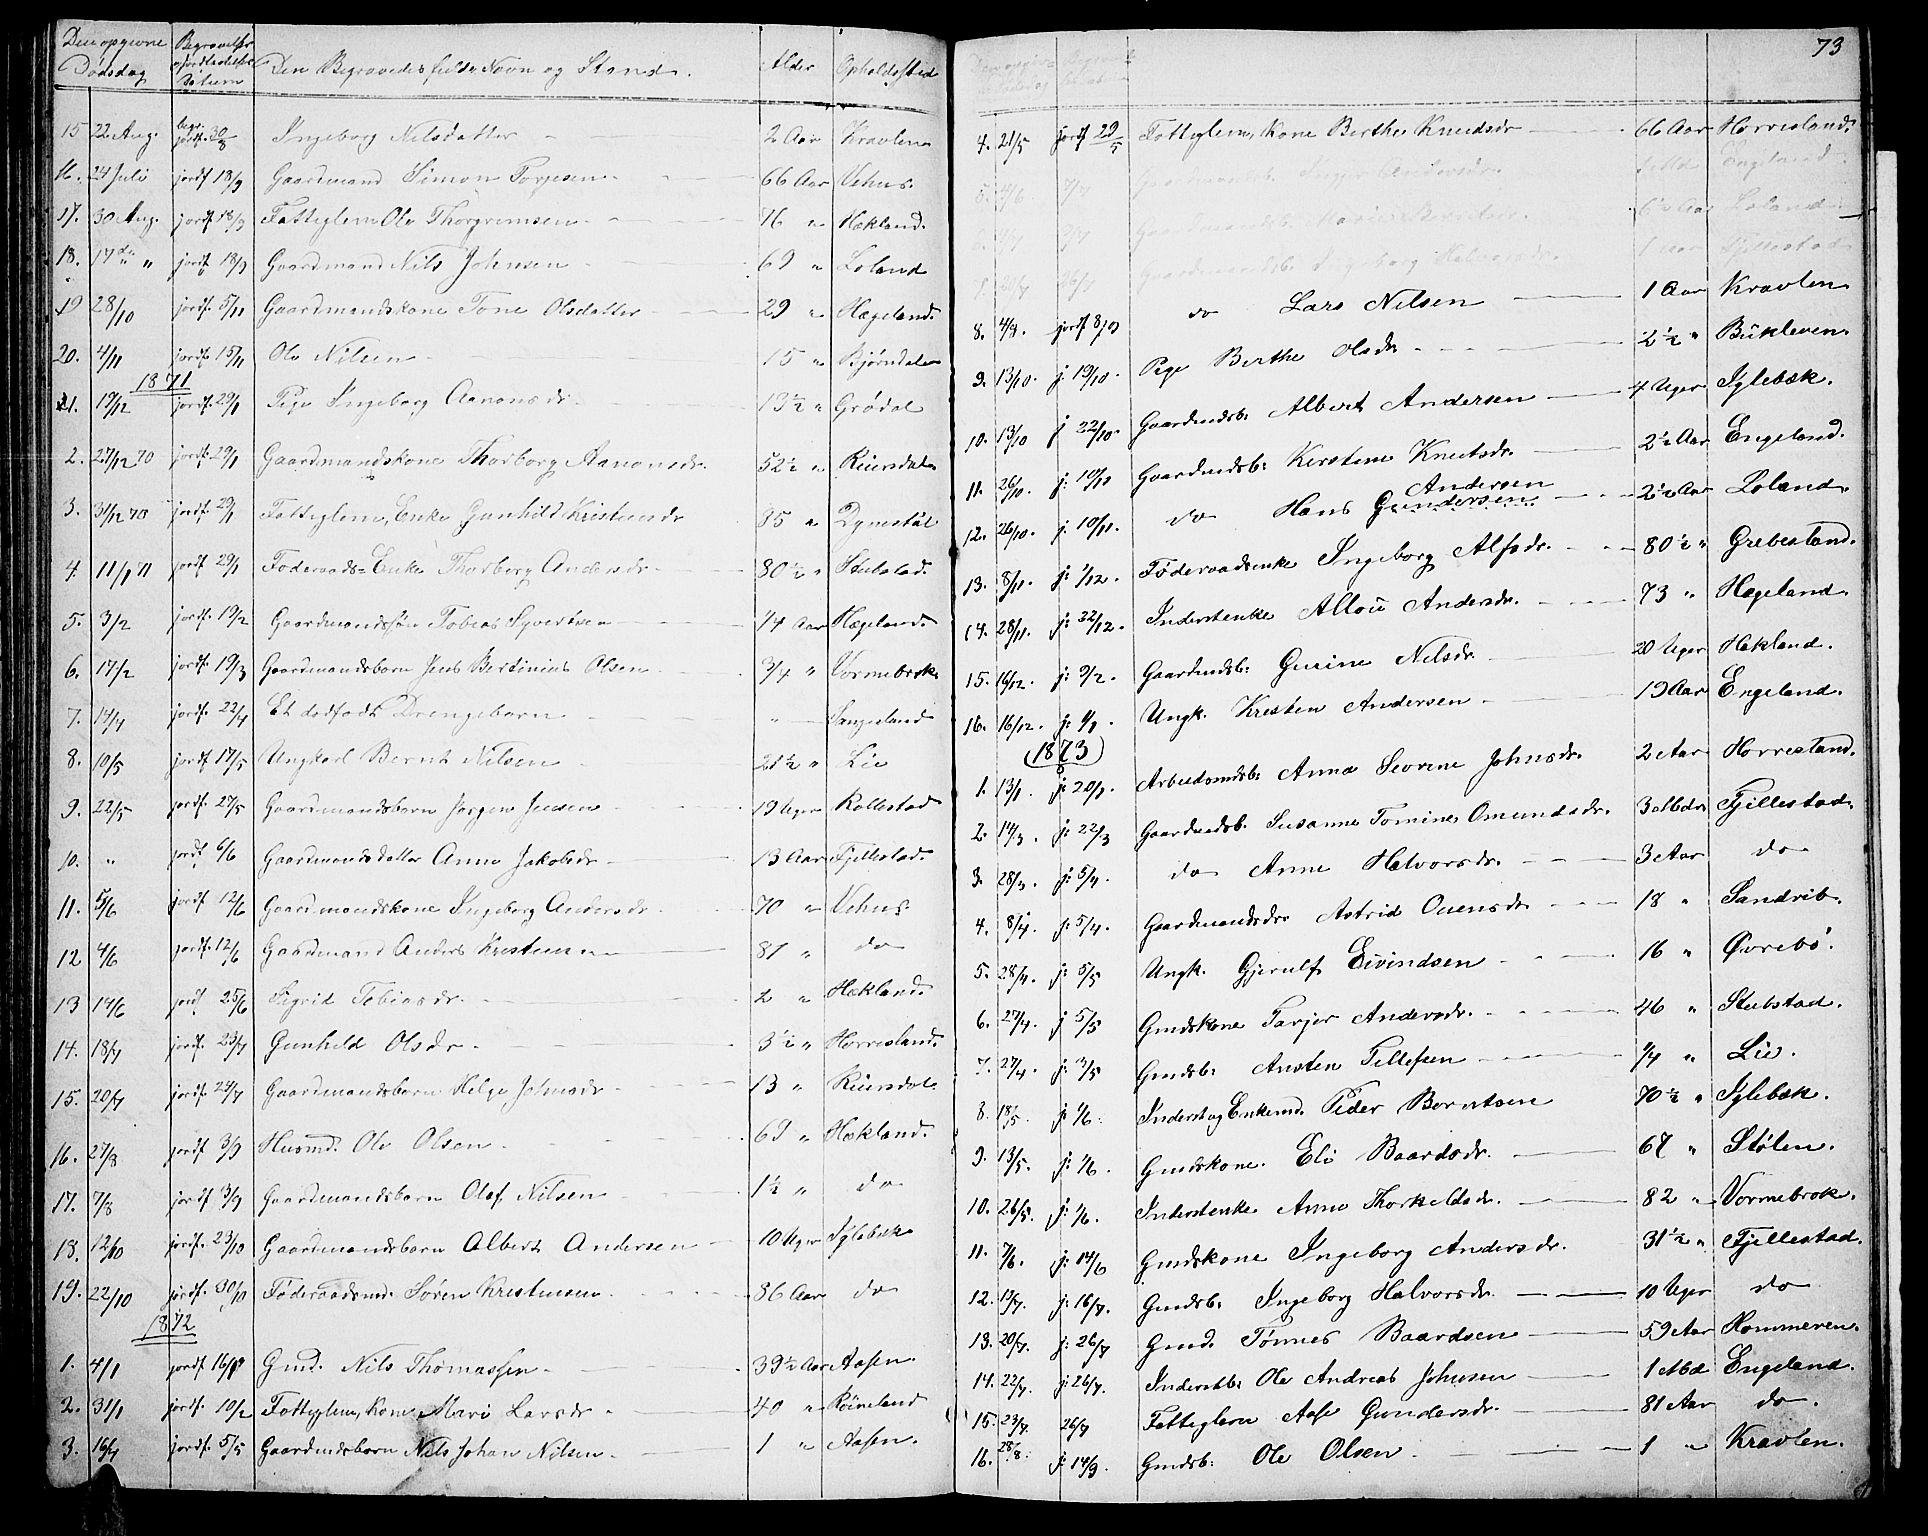 Den opgivne Dødsdag Begravelses og Jordfæstelses Datum Den Begravedes fulde Navn og Stand. Alder Opholdssted
15 22 Aug. begr. jordf. 30/8 Ingeborg Nilsdatter 2 Aar Kravlen
16. 24 Juli jordf 18/9 Gaardmand Simon Torjesen 66 Aar Vehus.
17. 30 Aug. jordf 18/9 Fattiglem Ole Thorgrimsen 76 " Hækland.
18. 17de " jordf 18/9 Gaardmand Nils Johnsen 69 " Loland
19 28/10 jordf. 5/11 Gaardmandskone Tone Olsdatter 29 " Hægeland.
20. 4/11 jordf. 15/11 Ole Nilsen 15 " Bjørndalen
1871
1. 19/12 jordf. 29/1 Pige Ingeborg Aanonsdr 13½ " Grødal
2. 27/12 70 jordf. 29/1 Gaardmandskone Thorborg Aanonsdr. 52½ " Reiersdal
3. 31/12 70 jordf. 29/1 Fattiglem, Enke Gunhild Kristensdr 85 " Dynestøl
4. 11/1 71 jordf 29/1 Føderaads-Enke Thorborg Andersdr 80½ " Stubstad.
5. 3/2 jordf. 19/2 Gaardmandssøn Tobias Syvertsen 14 Aar Hægeland.
6. 17/2 jordf. 19/3 Gaardmandsbarn Jens Bertinius Olsen 3/4 " Vormebrok.
7. 14/4 jordf. 22/4 Et dødfødt Drengebarn " Langeland
8. 10/5 jordf 17/5 Ungkarl Bernt Nilsen 21½ " Lie
9. 22/5 jordf. 27/5 Gaardmandsbarn Jørgen Jensen 19 Uger Rollestad
10. " jordf 6/6 Gaardmandsdatter Anne Jakobsdr 13 Aar Fjellestad.
11. 5/6 jordf 12/6 Gaardmandskone Ingeborg Andersdr 70 " Vehus.
12 4/6 jordf. 12/6 Gaardmand Anders Kristensen 81 " do
13 19/6 jordf 25/6 Sigrid Tobiasdr. 2 " Hækland.
14. 18/7 jordf. 23/7 Gunhild Olsdr 3½ " Horrisland.
15. 20/7 jordf. 24/7 Gaardmandsbarn Helge Johnsdr 13 " Reiersdal
16. 27/8 jordf 3/9 Husmd. Ole Olsen 69 " Hækland.
17. 7/8 jordf 3/9 Gaardmandsbarn Olaf Nilsen 1½ " do
18. 12/10 jordf. 23/10 Gaardmandsbarn Albert Andersen 10 Uger Iglebæk
19. 22/10 jordf. 30/10 Føderaadsmd. Søren Kristensen 86 Aar do
1872
1. 4/1 jordf 16/1 Gmd. Nils Thomassen 39½ Aar Aasen.
2. 31/1 jordf. 10/2 Fattiglem, Kone Mari Larsdr 40 " Røineland
3. 16/4 jordf. 5/5 Gaardmdsbarn Nils Johan Nilsen 1 " Aasen.
73
4. 21/5 jordf 29/5 Fattiglem, Kone Berthe Knudsdr 66 Aar Horrisland.
Gaardmandsb. Andersdr. Engeland.
6½ Aar Loland
Gaardmandsb. Ingeborg Halvorsdr. 1 Aar Fjellestad
8. 4/8. jordf 8/9 do Lars Nilsen 1 Aar Kravlen
9. 13/10. j. 19/10. Pige Berthe Olsdr 2½ " Bukleven.
10. 13/10 j 22/10. Gaardmdsb: Albert Andersen 4 Uger Iglebæk.
11. 26/10. j: 10/11 Gaardmdsb: Kirstine Knutsdr. 2½ Aar Engeland.
Andersen
12. 26/10. j: 10/11. do Hans Gundersen 2½ Aar Loland.
13. 8/11. j: 1/12. Føderaadsenke Ingeborg Alfsdr. 80½ " Grebestand.
14. 28/11. j: 22/12. Inderstenke Allou Andersdr. 73 " Hægeland.
15. 16/12. j: 9/2. Gaardmdsb: Gurine Nilsdr. 20 Uger Hækland.
16. 16/12. j: 1/1. Ungk. Kristen Andersen 19 Aar Engeland.
(1873)
1. 13/1. j: 20/1. Arbeidsmdsb: Anna Severine Johnsdr. 2 Aar Horrestand.
2. 14/3. j: 22/3 Gaardmdsb. Susanne Tomine Omundsdr. 3 Mdr Fjellestad.
3. 28/3. j: 5/4. do Anne Halvorsdr. 3 Aar do
4. 8/4. j: 5/4. Gaardmandsdr Astrid Ouensdr 18 " Sandrib.
5. 28/4. j: 5/5 Ungk. Gjerulf Eivindsen 16 " Øvrebø.
6. 27/4. j 5/5 Gmdskone Tarjer Andersdr. 46 " Stubstad.
7. 27/4. j: 3/5 Gmdsb: Austen Tellefsen 1/4 " Lie.
8. 18/5. j: 1/6. Inderst og Enkemd. Peder Berntsen 70½ " Iglebæk.
9. 13/5. j: 1/6. Gmdskone. Eli Baardsdr. 67 " Stølen.
10. 26/5. j: 1/6. Inderstenke Anne Thorkeldsdr. 82 " Vormebrok.
11. 7/6. j: 14/6 Gmdskone Ingeborg Andersdr. 31½ " Fjellestad.
12. 13/7. j: 16/7. Gmdsb: Ingeborg Halvorsdr. 10 Uger do
13. 20/7. j: 26/7 Gmd. Tønnes Baardsen 59 Aar Kommeren.
14. 22/7. j: 26/7. Inderstb: Ole Andreas Johnsen 1 Md Engeland.
15. 23/7. 26/7 Fattiglem Aase Gundersdr. 81 Aar do.
16. 28/8. j: 14/9. Gmdsb: Ole Olsen 1 " Kravlen.